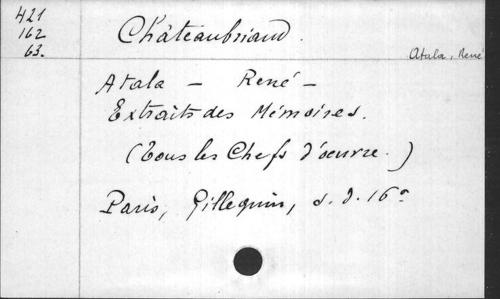 421
162
63.
Châteaubriand.
Atala, René
Atala - René -
Extraits des Mémoires.
(Tous les Chefs d'oeuvre.)
Paris, Gillequin, s. d. 16°